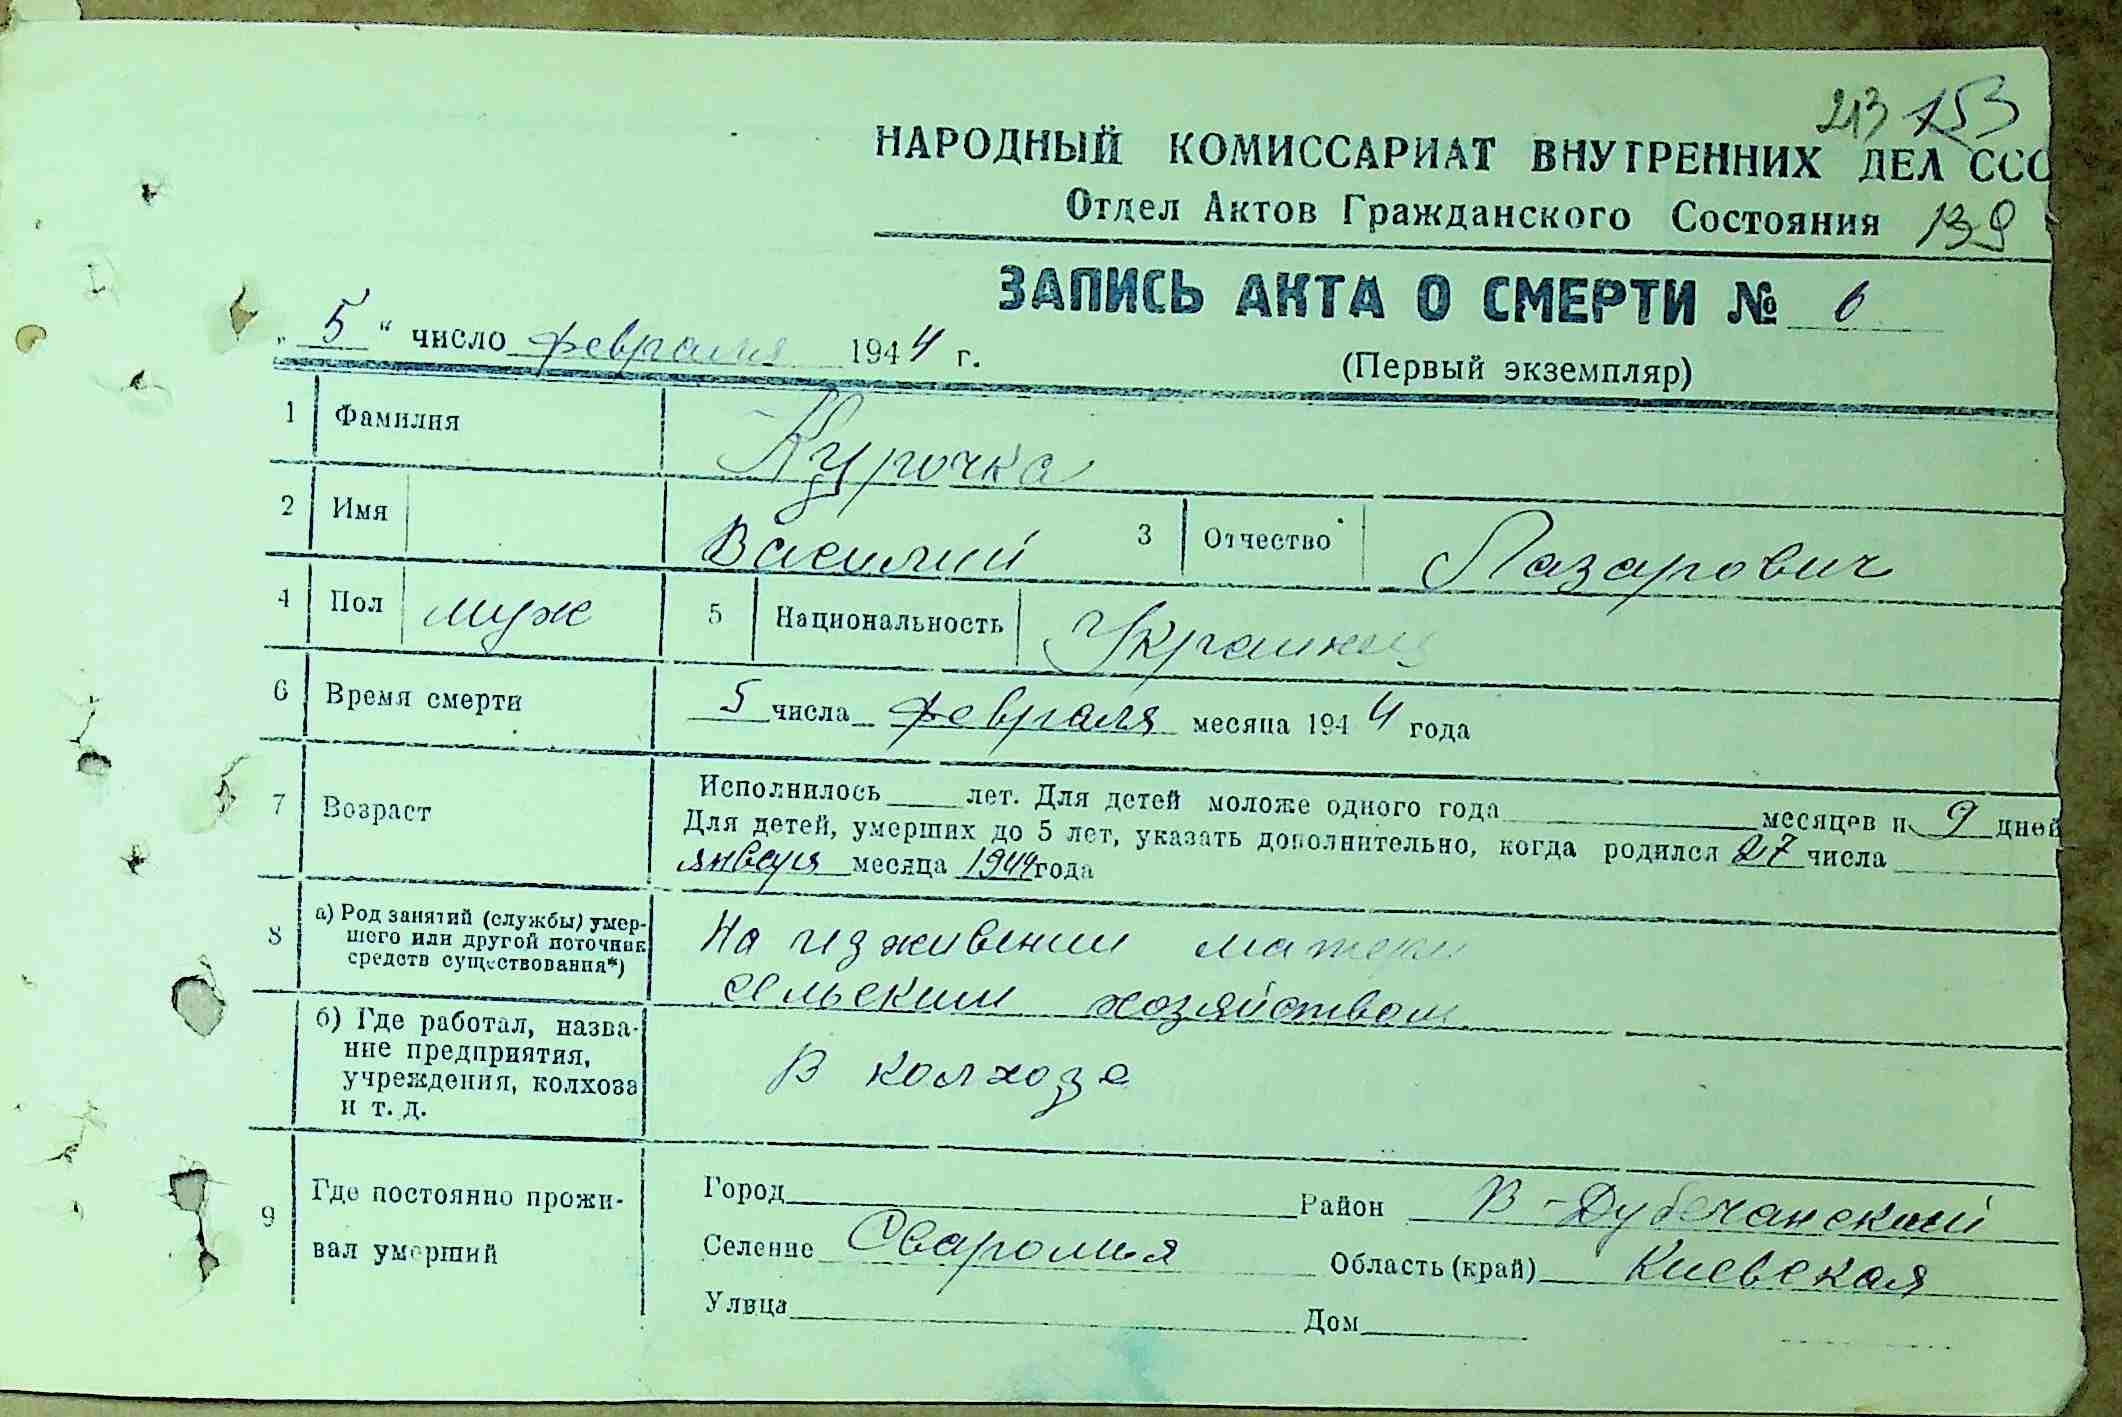 213 153
НАРОДНЫЙ КОМИССАРИАТ ВНУТРЕННИХ ДЕЛ ССС
Отдел Актов Гражданского Состояния 139
ЗАПИСЬ АКТА О СМЕРТИ № 6
„5“ число февраля 1944 г.
(Первый экземпляр)
1 Фамилия Курочка
2 Имя Василий 3 Отчество Лазарович
4 Пол муж 5 Национальность Украинец
6 Время смерти 5 числа февраля месяца 1944 года
7 Возраст Исполнилось лет. Для детей моложе одного года месяцев и 9 дней
Для детей, умерших до 5 лет, указать дополнительно, когда родился 27 числа
января месяца 1944 года
8 а) Род занятий (службы) умер-
шего или другой источник
средств существования*)
На изживении матери
сельским хозяйством
б) Где работал, назва-
ние предприятия,
учреждения, колхоза
и т. д.
В колхозе
9 Где постоянно прожи-
вал умерший
Город Район В-Дубечанский
Селение Сваромья Область (край) Киевская
Улица Дом